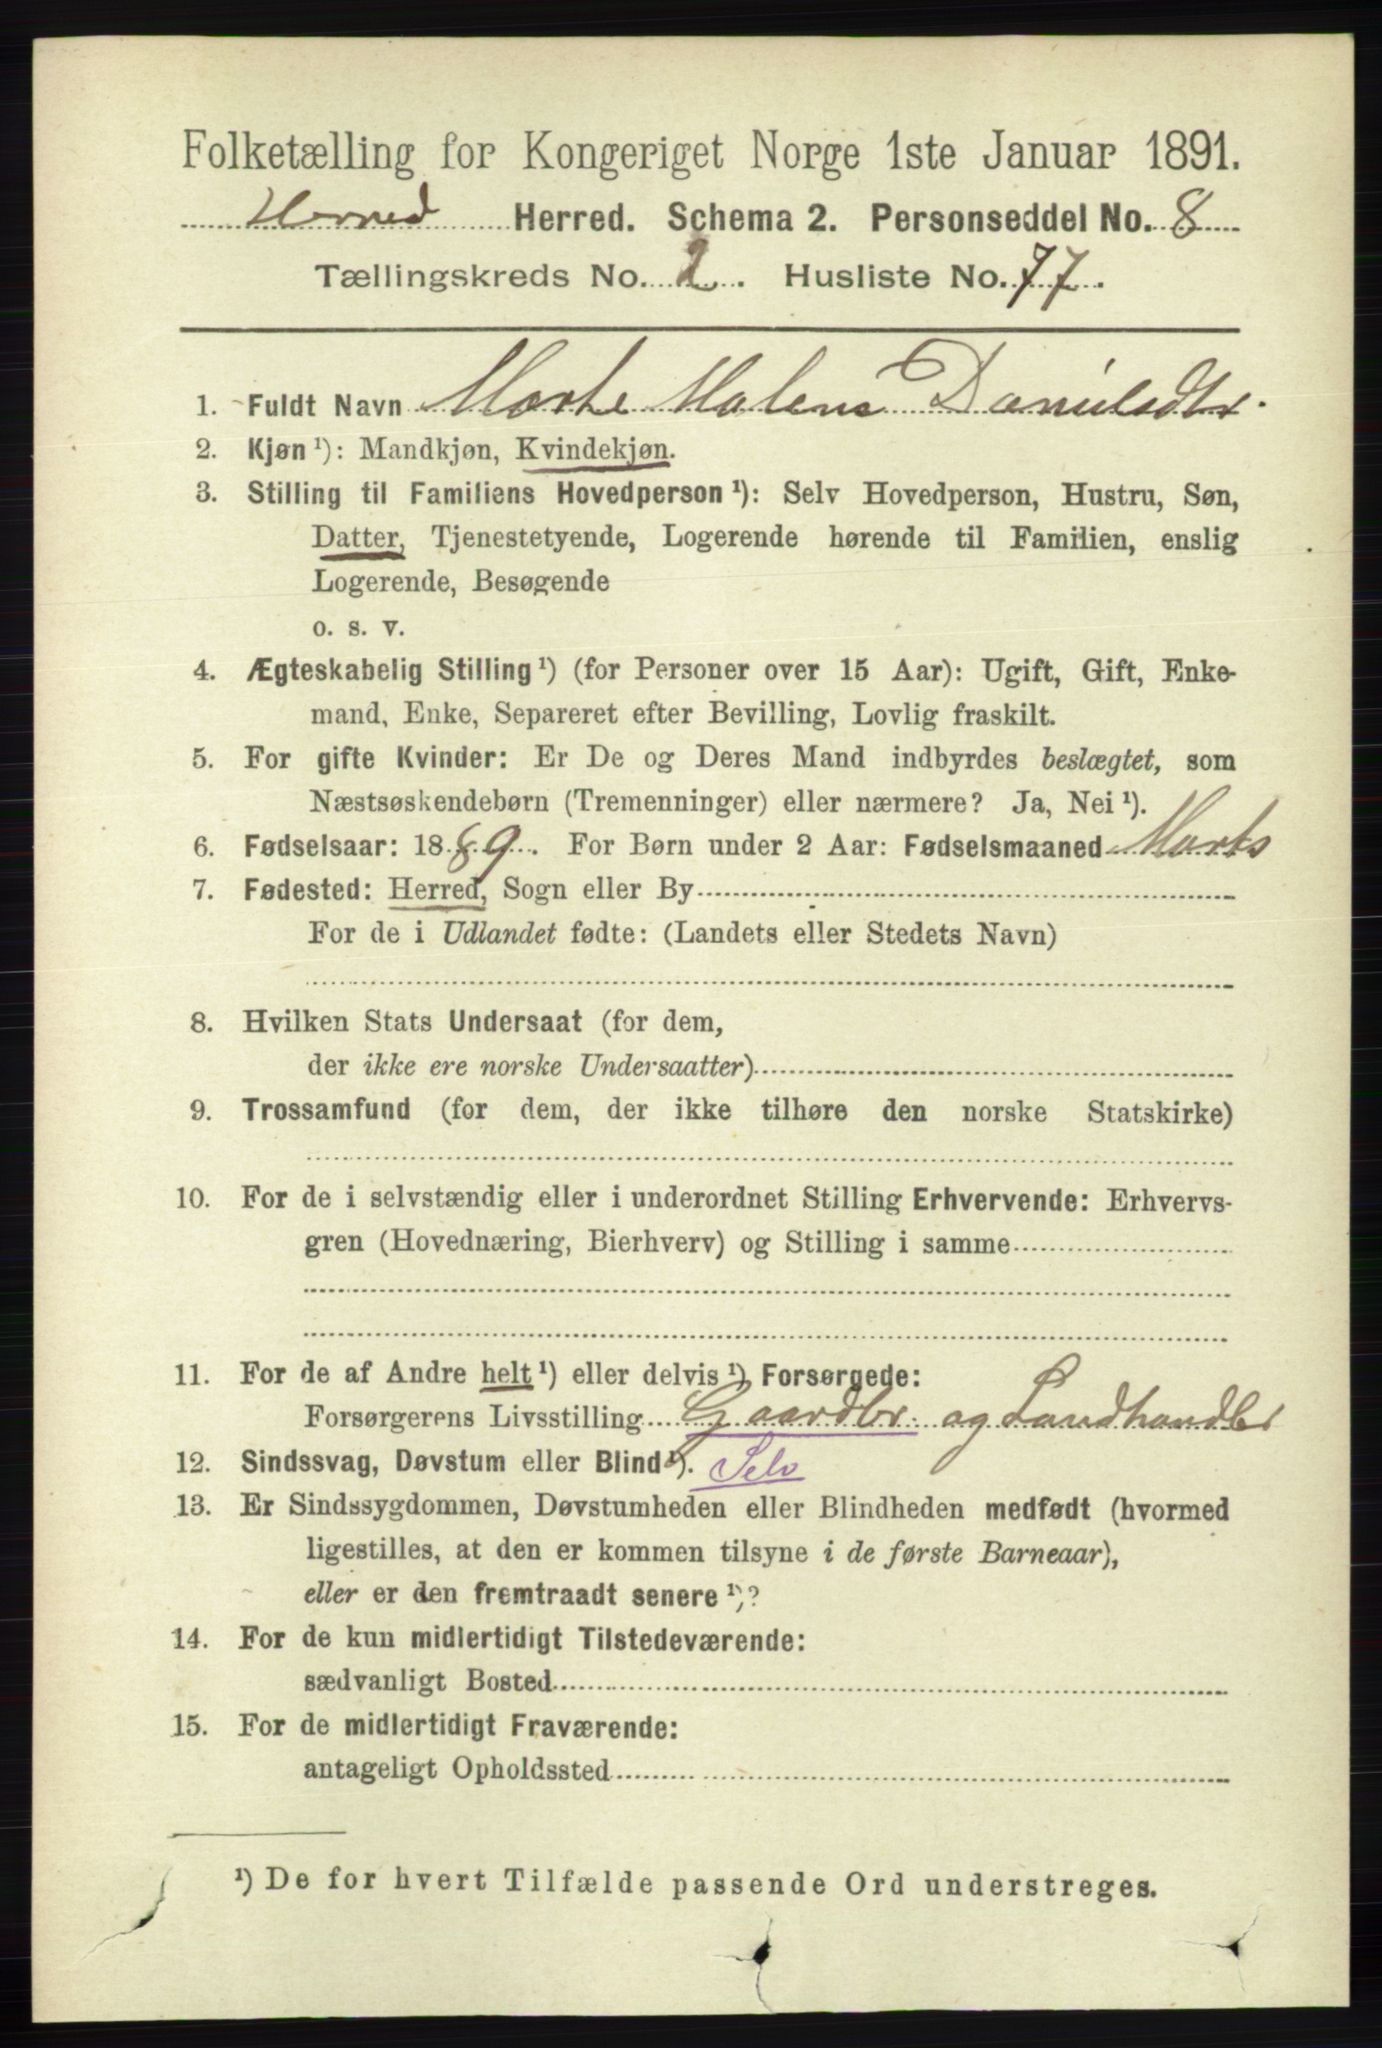 Folketælling for Kongeriget Norge 1ste Januar 1891.
Herred. Schema 2. Personseddel No. 8
Tællingskreds No. 2. Husliste No. 77.
1. Fuldt Navn Marte Malene Danielsdtr.
2. Kjøn ¹): Mandkjøn, Kvindekjøn.
3. Stilling til Familiens Hovedperson ¹): Selv Hovedperson, Hustru, Søn,
Datter, Tjenestetyende, Logerende hørende til Familien, enslig
Logerende, Besøgende
o. s. v.
4. Ægteskabelig Stilling ¹) (for Personer over 15 Aar): Ugift, Gift, Enke-
mand, Enke, Separeret efter Bevilling, Lovlig fraskilt.
5. For gifte Kvinder: Er De og Deres Mand indbyrdes beslægtet, som
Næstsøskendebørn (Tremenninger) eller nærmere? Ja, Nei ¹).
6. Fødselsaar: 1889. For Børn under 2 Aar: Fødselsmaaned Marts
7. Fødested: Herred, Sogn eller By
For de i Udlandet fødte: (Landets eller Stedets Navn)
8. Hvilken Stats Undersaat (for dem,
der ikke ere norske Undersaatter)
9. Trossamfund (for dem, der ikke tilhøre den norske Statskirke)
10. For de i selvstændig eller i underordnet Stilling Erhvervende: Erhvervs-
gren (Hovednæring, Bierhverv) og Stilling i samme
11. For de af Andre helt ¹) eller delvis ¹) Forsørgede:
Forsørgerens Livsstilling Gaardbr. og Landhandler
12. Sindssvag, Døvstum eller Blind ¹). Selv
13. Er Sindssygdommen, Døvstumheden eller Blindheden medfødt (hvormed
ligestilles, at den er kommen tilsyne i de første Barneaar),
eller er den fremtraadt senere ¹)?
14. For de kun midlertidigt Tilstedeværende:
sædvanligt Bosted
15. For de midlertidigt Fraværende:
antageligt Opholdssted
¹) De for hvert Tilfælde passende Ord understreges.